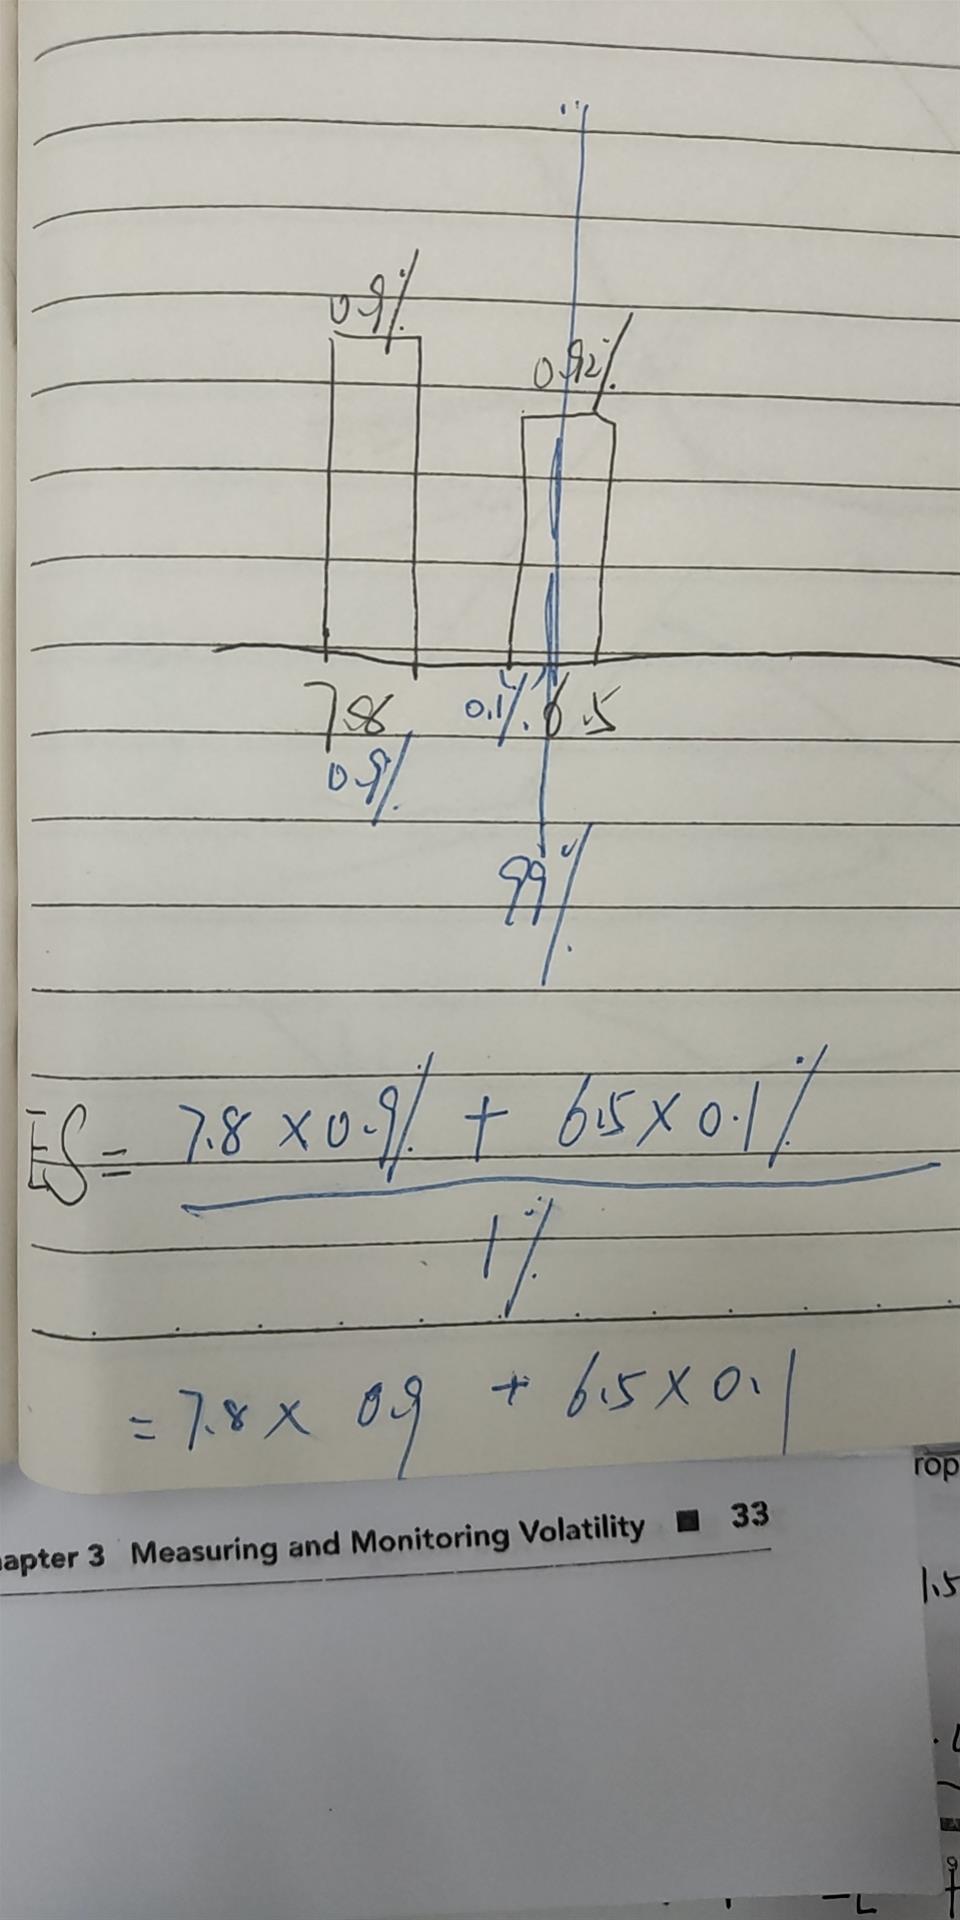 0.9%
0.92%
7.8 0.1% 6.5
0.9%
99%
ES = 7.8 × 0.9% + 6.5 × 0.1%
1%
= 7.8 × 0.9 + 6.5 × 0.1
rop
apter 3 Measuring and Monitoring Volatility ■ 33
1.5